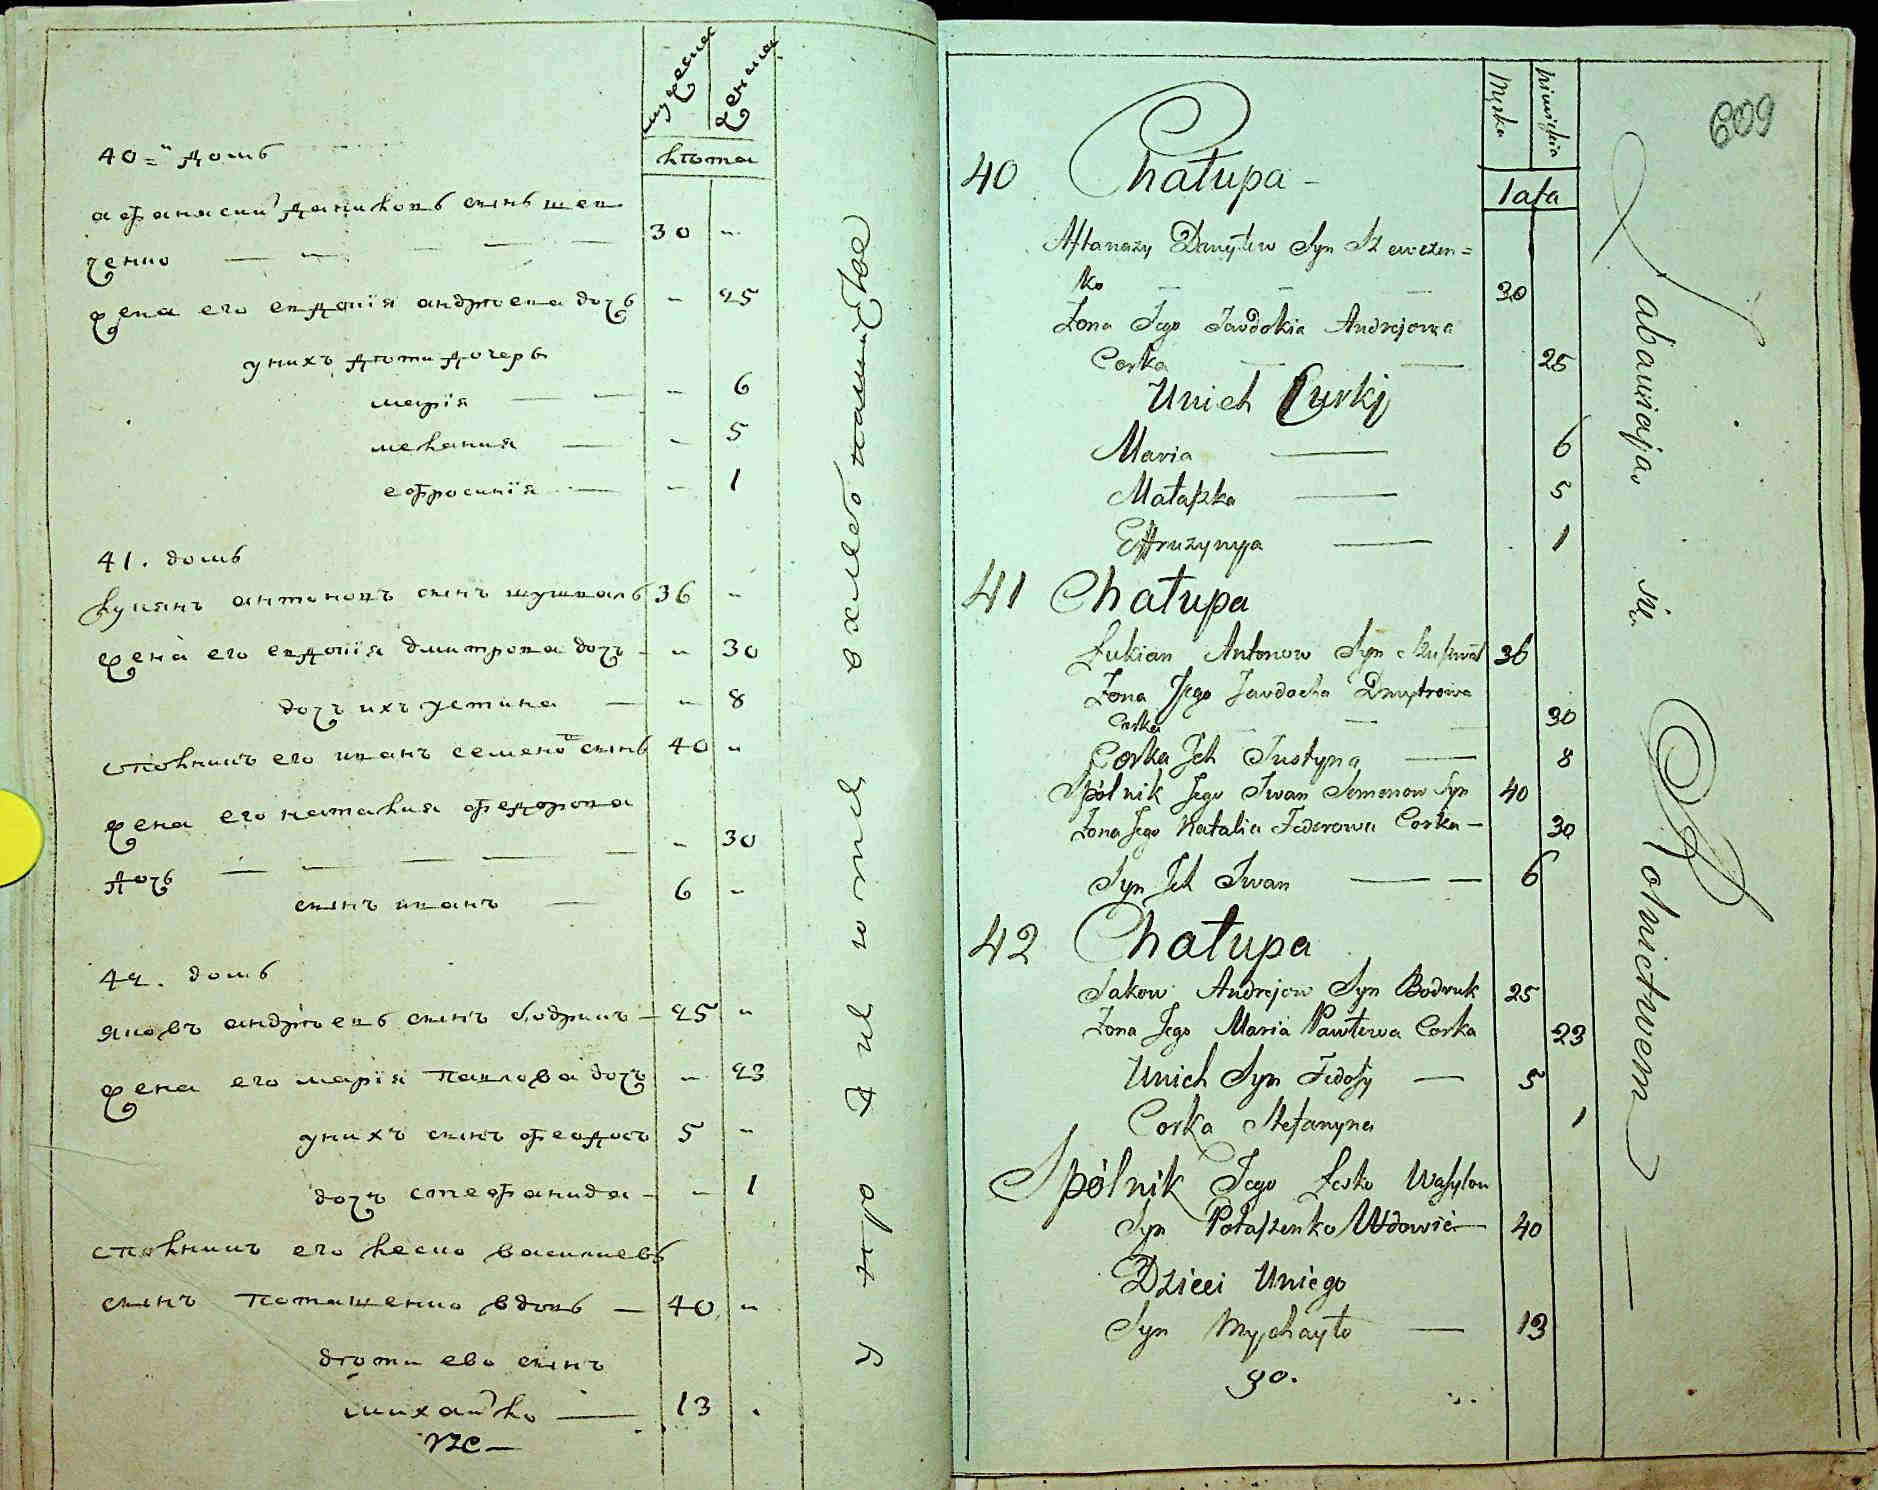 мужеска
женска
лѣта
40=й домъ
афанасий даниловъ сынъ шев
ченко — — — — — 30 "
жена его евдокія андрѣева дочь " 25
у нихъ дѣти дочерь
марія — — " 6
мелания — " 5
ефросинія — " 1
41. домъ
лукянъ антоновъ сынъ шушваль 36 "
жена его евдокія дмитрова дочь " 30
дочь ихъ устина — " 8
сполникъ его иванъ семеновъ сынъ 40 "
жена его наталия федорова
дочь — — — — — " 30
сынъ иванъ — 6 "
42. домъ
яковъ андрѣевъ сынъ бодрикъ — 25 "
жена его марія павлова дочь " 23
у нихъ сынъ феодосъ 5 "
дочь стефанида — " 1
сполникъ его леско василиевъ
сынъ поташенко вдовъ — 40 "
дѣти ево сынъ
михайло — 13 "
упражняются в хлебопашистве
609
Męska
Niewieścia
lata
40 Chałupa —
Aftanazy Dmytrow Syn Szewczen=
ko — — — 30
Żona Jego Jawdokia Andrejowa
Corka — — 25
Unich Curki
Maria — 6
Małaszka — 5
Effruzynya — 1
41 Chałupa
Łukian Antonow Syn Szuszwał 36
Żona Jego Jawdocha Dmytrowa
Corka — — — 30
Corka Ich Justyna — 8
Spólnik Jego Iwan Semenow Syn 40
Żona Jego Natalia Fedorowa Corka — 30
Syn Ich Iwan — — 6
42 Chałupa
Jakow Andrejow Syn Bodruk 25
Żona Jego Maria Pawłowa Corka 23
Unich Syn Fedosy — 5
Corka Stefanyna 1
Spólnik Jego Lesko Wasylow
Syn Potaszenko Wdowiec — 40
Dzieci Uniego
Syn Mychayło — 13
90.
Zabawiaja sie Rolnictwem —